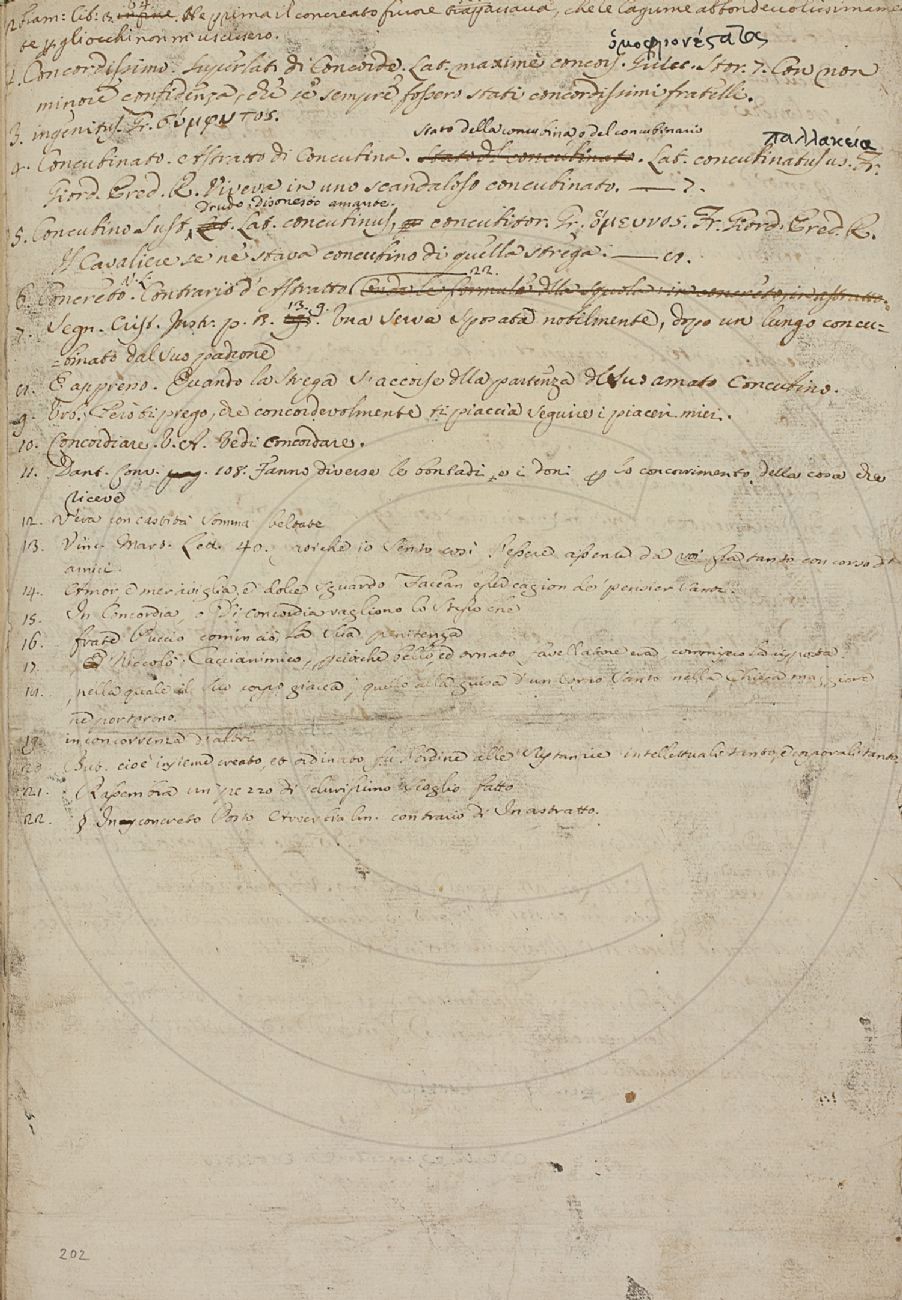 Fiam: lib: 3. 64. in fine. Ne prima il concreato furore trapassava, che le lagrime abbondevolissimamen
te p gliocchi non m'uscissero.
ὁμοφρονέςατος
2. Concordissimo. Superlat. di Concorde. Lat. maximè concors. Guicc. Stor. 7. Con non
minore confidenza, che se sempre fossero stati concordissimi fratelli.
3. ingenitus. Gr. σύμφυτος.
Stato della concubina o del concubinario παλλακεία
4. Concubinato. Astratto di Concubina. Stato del concubinato. Lat. concubinatus us. Gr.
Giord. Pred. R. Viveva in uno scandaloso concubinato. — 7.
Drudo, disonesto amante.
5. Concubino Sust. Lat. Lat. concubinus, concubitor. Gr. ὅμευνος. Fr. Giord. Pred. R.
Il Cavaliere se ne stava concubino di quella strega. — 8.
22.
6. Concreto. Contrario d'Astratto. Onde le formule della Scuola: in concreto, in astratto.
13. 9.
7. Segn. Crist. Instr. p. 3. Una serva sposata nobilmente, dopo un lungo concu-
-binato dal suo padrone
8. E appresso. Quando la strega s'accorse dlla partenza del suo amato Concubino.
9. Però ti prego, che concordevolmente ti piaccia seguire i piaceri miei.
10. Concordiare. V. A. Vedi concordare.
11. Dant. Conv. 108. Fanno diverse le bontadi, e i doni p lo concorrimento della cosa che
riceve
12. V'era con castità somma beltate
13. Vinc. Mart. Let. 40. poiche io sento così l'essere assente da voi tanto concorso d'
amici.
14. Amor, e meraviglia, e dolce sguardo Facean esser cagion de' pensier santi.
15. In Concordia, o Di concordia vagliono lo stesso che
16. frate Puccio cominciò la sua penitenza
17. Niccolò Caccianimico, perciochè bello, ed ornato favellatore era, commessa la risposta.
18. nella quale il suo corpo giacea; quello alla guisa d'un Corpo Santo nella Chiesa maggiore
ne portarono.
19. in concorrenza d'altri
20. But. cioè insieme creato, et ordinato fu l'ordine alle Sustanzie intellettuali tanto, e corporali tanto.
21. Rassembra un pezzo di durissimo scoglio fatto
22. § In concreto Posto Avverbialm. contrario di In astratto.
202